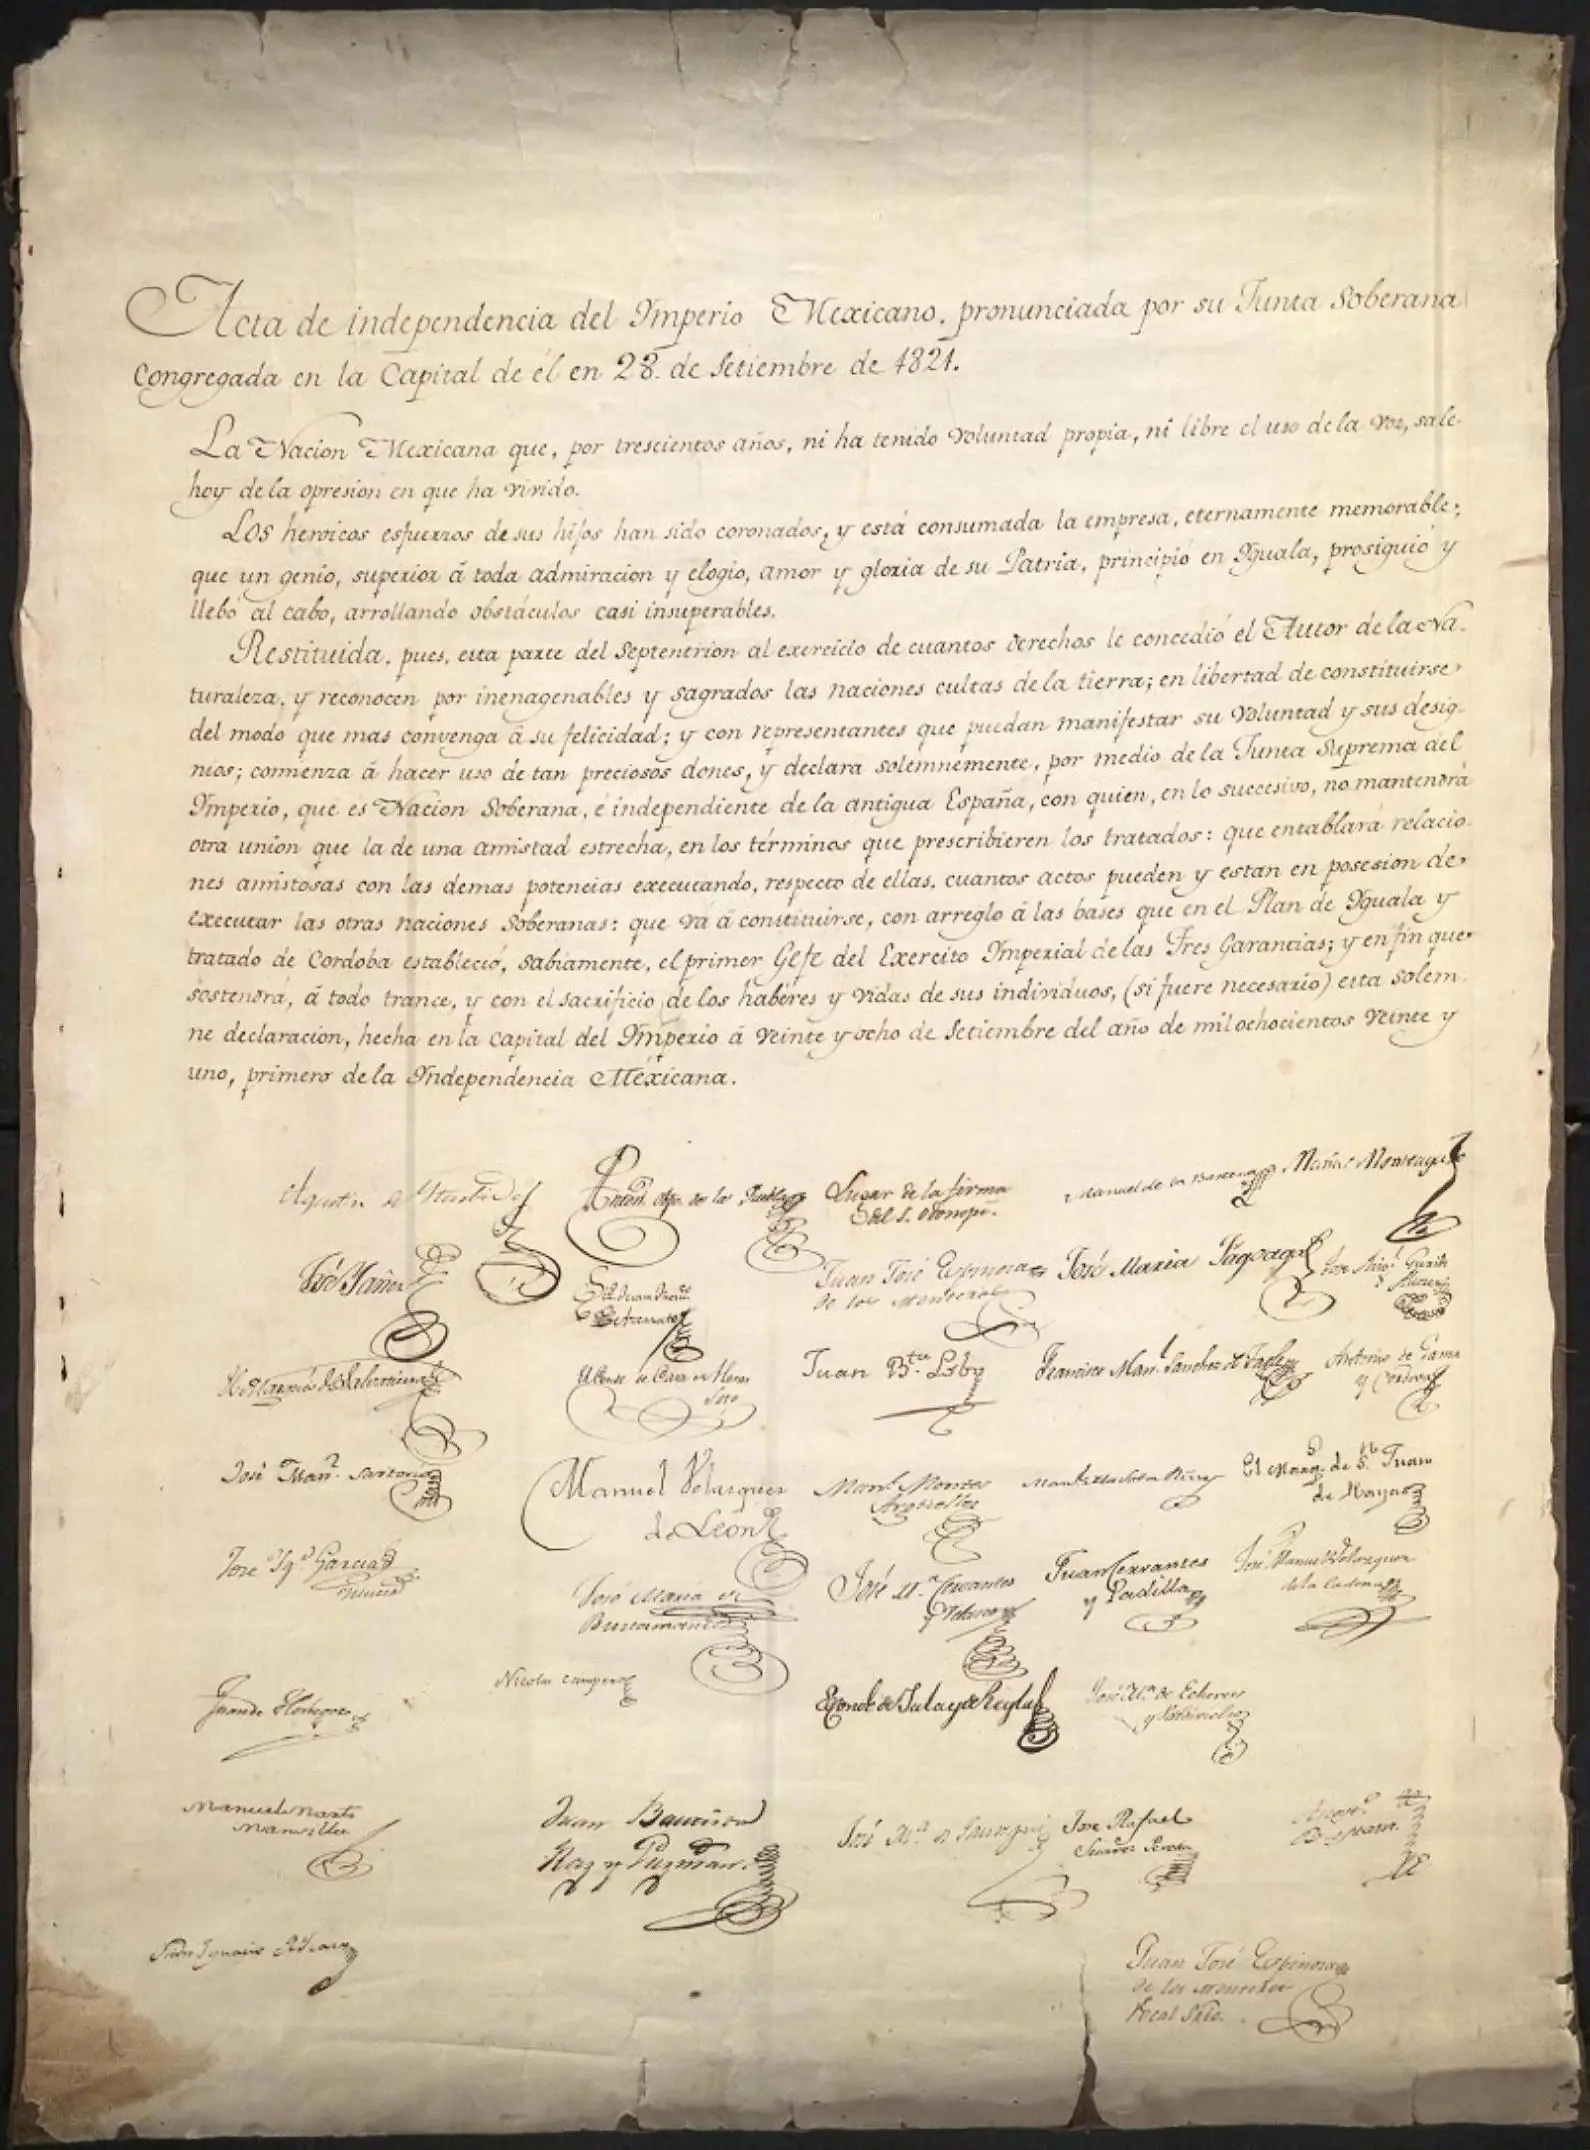 Acta de independencia del Imperio Mexicano, pronunciada por su Junta Soberana
congregada en la Capital de él en 28. de Setiembre de 1821.
La Nacion Mexicana que, por trescientos años, ni ha tenido voluntad propia, ni libre el uso de la voz, sale
hoy de la opresion en que ha vivido.
Los heroicos esfuerzos de sus hijos han sido coronados, y está consumada la empresa, eternamente memorable,
que un genio, superior á toda admiracion y elogio, amor y gloria de su Patria, principió en Iguala, prosiguió y
llebó al cabo, arrollando obstáculos casi insuperables.
Restituida, pues, esta parte del Septentrion al exercicio de cuantos derechos le concedió el Autor de la Na-
turaleza, y reconocen por inenagenables y sagrados las naciones cultas de la tierra; en libertad de constituirse
del modo que mas convenga á su felicidad; y con representantes que puedan manifestar su voluntad y sus desig-
nios; comienza á hacer uso de tan preciosos dones, y declara solemnemente, por medio de la Junta Suprema del
Imperio, que és Nacion Soberana, é independiente de la antigua España, con quien, en lo succesivo, no mantendrá
otra union que la de una amistad estrecha, en los términos que prescribieren los tratados: que entablará relacio-
nes amistosas con las demas potencias executando, respecto de ellas, cuantos actos pueden y estan en posesion de
executar las otras naciones Soberanas: que vá á constituirse, con arreglo á las bases que en el Plan de Iguala y
tratado de Cordoba estableció, sabiamente, el primer Gefe del Exercito Imperial de las Tres Garantias; y en fin que
sostendrá, á todo trance, y con el sacrificio de los habéres y vidas de sus individuos, (si fuere necesario) esta solem-
ne declaracion, hecha en la capital del Imperio á veinte y ocho de Setiembre del año de mil ochocientos veinte y
uno, primero de la Independencia Méxicana.
Agustin de Iturbide
Lugar de la firma
del S. Odonojú.
Manuel de la Barcena
Matias Monteagudo
José Yañez
Juan José Espinosa
de los Monteros
José Maria Fagoaga
Juan B.ta Lobo
Francisco Man.l Sanchez de Tagle
Antonio de Gama
y Cordova
José Man.l Sartorio
Manuel Velasquez
de León
Man.l Montes
Arguelles
El Marq.s de S.n Juan
de Rayas
José Ig.o Garcia
José Maria de
Bustamante
José M.a Cervantes
y Velasco
Juan Cervantes
y Padilla
José Manuel Velazquez
de la Cadena
Juan de Horbegoso
Nicolas Campero
El Conde de Jala y de Regla
José M.a de Echevers
y Valdivielso
Manuel Martz
Mansilla
Juan Bautista
Raz y Guzman.
José M.a de Jauregui
José Rafael
Suarez Pereda
Juan José Espinosa
de los Monteros
Vocal Srio.